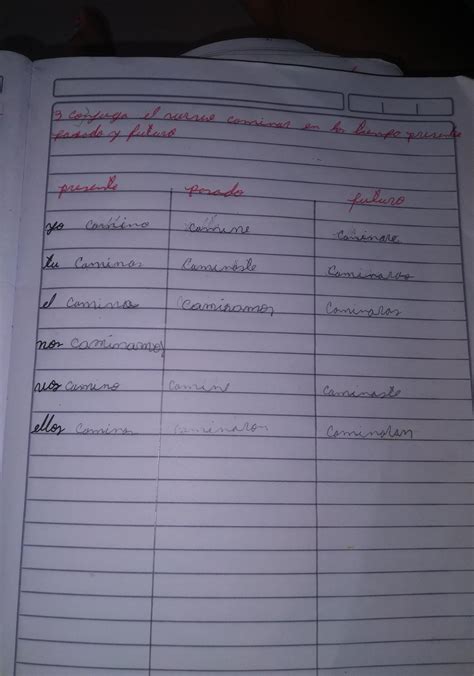 3 conjuga el vervo caminar en los tiempo presente
pasado y futuro
presente pasado futuro
yo camino camine caminare
tu caminas caminaste caminaras
el camina caminamos caminaras
nos caminamos
vos camino camine caminaste
ellos caminan caminaron caminaran